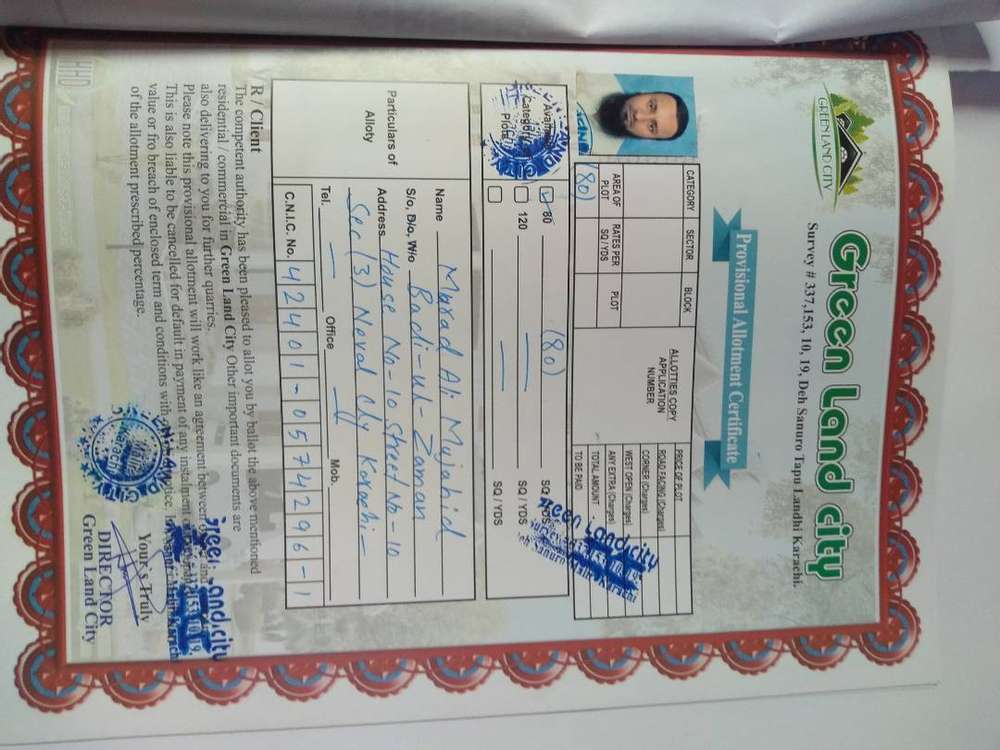 GREEN LAND CITY
Green Land city
Survey # 337,153, 10, 19, Deh Sanuro Tapu Landhi Karachi.
Provisional Allotment Certificate
CATEGORY SECTOR BLOCK
ALLOTTIES COPY
APPLICATION
NUMBER
AREA OF PLOT RATES PER SQ / YDS PLOT
(80)
PRICE OF PLOT
ROAD FACING (Charges)
CORNER (Charges)
WEST OPEN (Charges)
ANY EXTRA (Charges)
TOTAL AMOUNT
TO BE PAID
80 (80) SQ / YDS
120 SQ / YDS
SQ / YDS
Green Land city
Particulars of
Alloty
Name Murad Ali Mujahid
S/o, D/o, W/o Badi-ul-Zaman
Address House No-10 Street No-10
Sec (3) Neval City Karachi-
Tel. Office Mob.
C.N.I.C. No. 42401-0574296-1
R / Client
The competent authority has been pleased to allot you by ballot the above mentioned
residential / commercial in Green Land City Other important documents are
also delivering to you for further quarries.
Please note this provisional allotment will work like an agreement between and
This is also liable to be cancelled for default in payment of any instalment
value or fro breach of enclosed term and conditions with notice,
of the allotment prescribed percentage.
Green Land city
Your's Truly
DIRECTOR
Green Land City